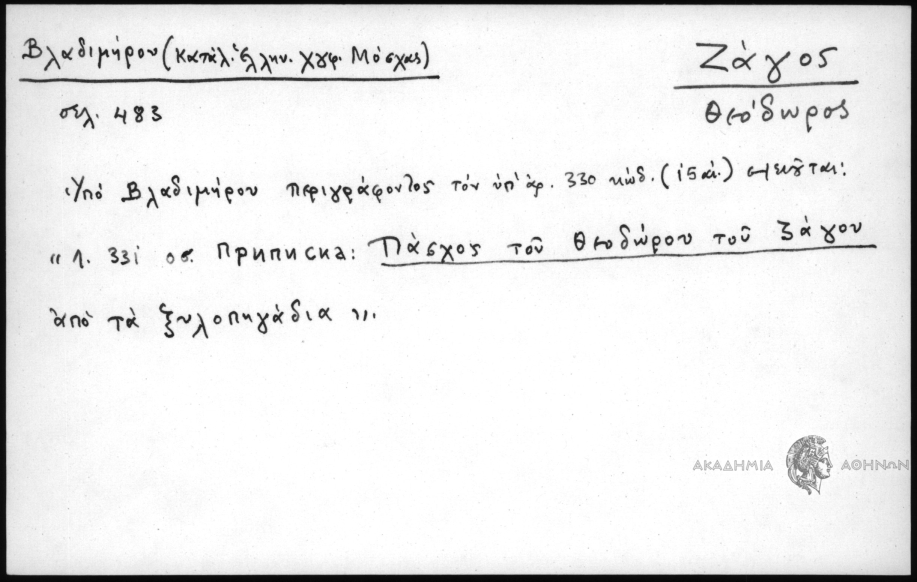 Βλαδιμήρου (Κατάλ. Ἑλλην. χγφ. Μόσχας)
Ζάγος
Θεόδωρος
σελ. 483
Ὑπό Βλαδιμήρου περιγράφοντος τόν ὑπ' ἀρ. 330 κώδ. (ις αἰ.) σημειοῦται:
"л. 331 об. Приписка: Πάσχος τοῦ Θεοδώρου τοῦ Ζάγου
ἀπό τά ξυλοπηγάδια".
ΑΚΑΔΗΜΙΑ ΑΘΗΝΩΝ